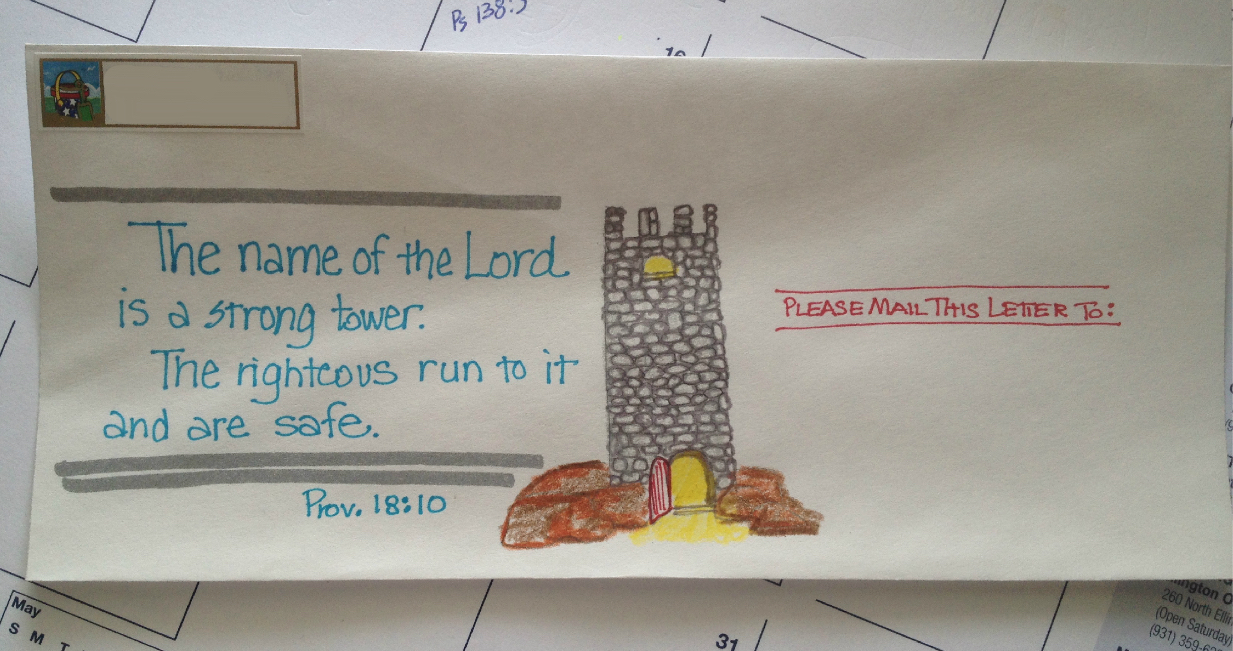 Ps 138:
The name of the Lord
is a strong tower.
The righteous run to it
and are safe.
Prov. 18:10
PLEASE MAIL THIS LETTER TO:
May
S M T
31
260 North
(Open Saturday)
(931) 359-